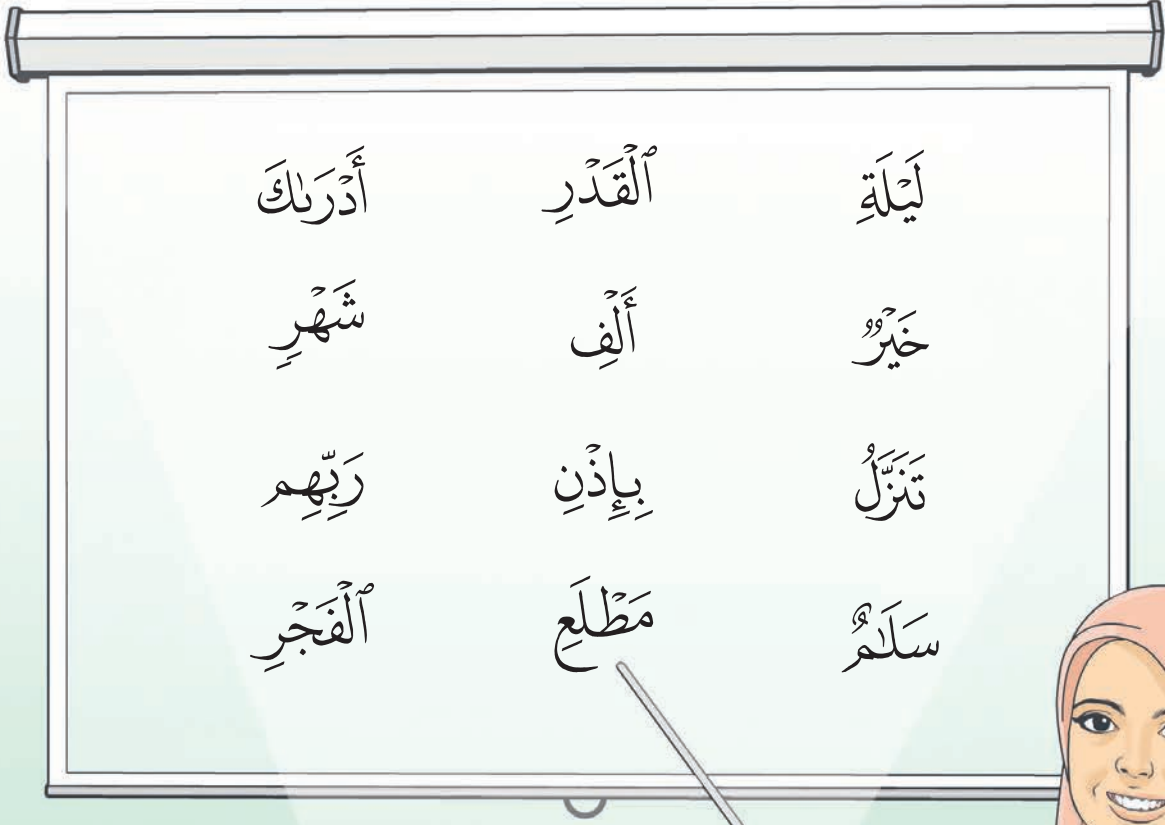 لَيْلَةِ ٱلْقَدْرِ أَدْرَىٰكَ
خَيْرٌ أَلْفِ شَهْرٍ
تَنَزَّلُ بِإِذْنِ رَبِّهِم
سَلَـٰمٌ مَطْلَعِ ٱلْفَجْرِ